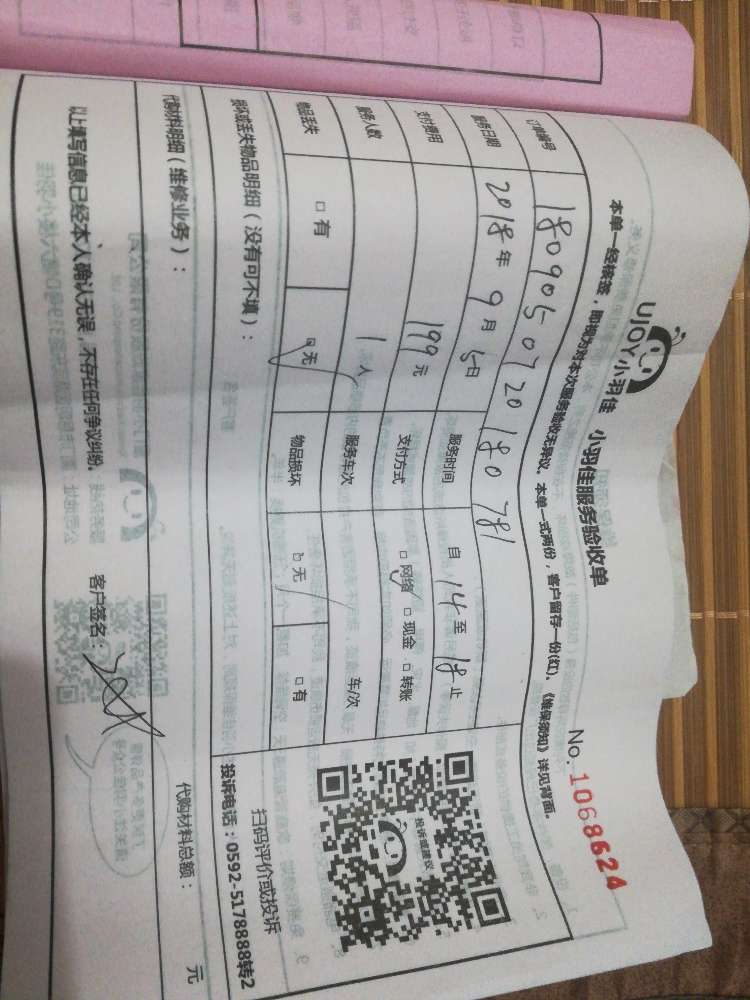 UJOY小羽佳 小羽佳服务验收单
No. 1068624
本单一经核签，即视为对本次服务验收无异议。本单一式两份，客户留存一份(红)。《维保须知》详见背面。
订单编号 1809050720180781
服务日期 2018年9月5日 服务时间 自14至18止
支付费用 199元 支付方式 □网络 □现金 □转账
服务人数 1人 服务车次 车/次
物品丢失 □有 □无 物品损坏 □无 □有
投诉或建议
扫码评价或投诉
投诉电话：0592-5178888转2
损坏或丢失物品明细（没有可不填）：
代购材料明细（维修业务）：
代购材料总额： 元
以上填写信息已经本人确认无误，不存在任何争议纠纷。 客户签名：